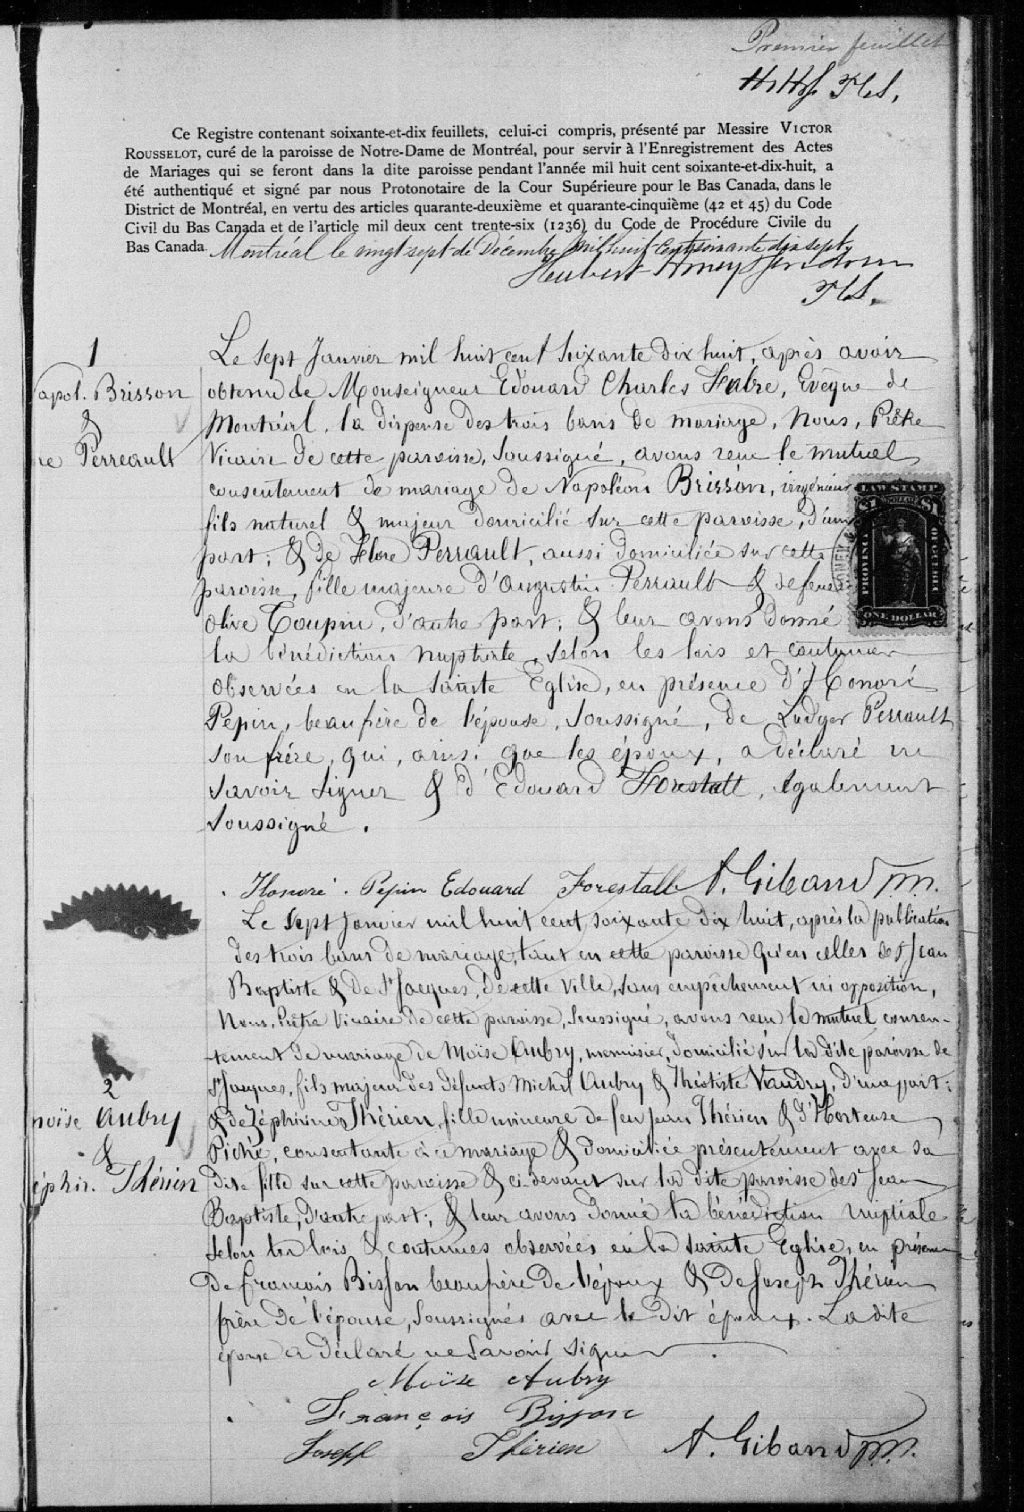 Premier feuillet
P.C.S.
Ce Registre contenant soixante-et-dix feuillets, celui-ci compris, présenté par Messire VICTOR
ROUSSELOT, curé de la paroisse de Notre-Dame de Montréal, pour servir à l'Enregistrement des Actes
de Mariages qui se feront dans la dite paroisse pendant l'année mil huit cent soixante-et-dix-huit, a
été authentiqué et signé par nous Protonotaire de la Cour Supérieure pour le Bas Canada, dans le
District de Montréal, en vertu des articles quarante-deuxième et quarante-cinquième (42 et 45) du Code
Civil du Bas Canada et de l'article mil deux cent trente-six (1236) du Code de Procédure Civile du
Bas Canada.
Montréal le vingt sept de Décembre mil huit cent soixante dix sept
P.C.S.
1
apol. Brisson
&
re Perreault
Le sept Janvier mil huit cent soixante dix huit, après avoir
obtenu de Monseigneur Edouard Charles Fabre, Evêque de
Montréal, la dispense des trois bans de mariage, Nous, Prêtre
Vicaire de cette paroisse, soussigné, avons reçu le mutuel
consentement de mariage de Napoléon Brisson, ingénieur
fils naturel & majeur domicilié sur cette paroisse, d'une
part; & de Flore Perrault, aussi domiciliée sur cette
paroisse, fille majeure d'Augustin Perrault & de feue
Olive Toupin, d'autre part; & leur avons donné
la bénédiction nuptiale, selon les lois et coutumes
observées en la Sainte Eglise, en présence d'Honoré
Pepin, beaufrère de l'épouse, soussigné, de Ludger Perrault
son frère, qui, ainsi que les époux, a déclaré ne
savoir signer & d'Edouard Forestall, également
soussigné.
LAW STAMP
$1
$1
PROVINCE
OF QUEBEC
ONE DOLLAR
Honoré Pepin Edouard Forestall A. Giband ptr.
2
Moïse Aubry
&
éphir. Thérien
Le sept Janvier mil huit cent soixante dix huit, après la publication
des trois bans de mariage, tant en cette paroisse qu'en celles de St Jean
Baptiste & de St Jacques, de cette ville, sans empêchement ni opposition,
Nous, Prêtre Vicaire de cette paroisse, soussigné, avons reçu le mutuel consen-
-tement de mariage de Moïse Aubry, menuisier, domicilié sur la dite paroisse de
St Jacques, fils majeur des défunts Michel Aubry & Théotiste Vaudry, d'une part;
& de Zéphirine Thérien, fille mineure de feu Jean Thérien & d'Hortense
Piché, consentante à ce mariage & domiciliée présentement avec sa
dite fille sur cette paroisse & ci-devant sur la dite paroisse de St Jean
Baptiste, d'autre part; & leur avons donné la bénédiction nuptiale
selon les lois & coutumes observées en la Sainte Eglise, en présence
de François Bisson beaufrère de l'époux & de Joseph Thérien
frère de l'épouse, soussignés avec le dit époux. La dite
épouse a déclaré ne savoir signer.
Moïse Aubry
François Bisson
Joseph Thérien A. Giband ptr.